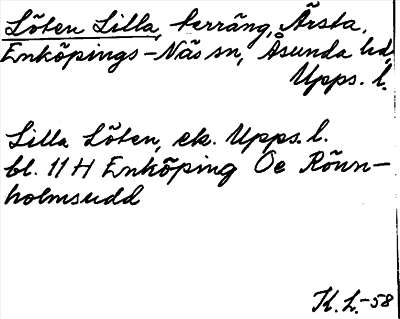 Löten Lilla, terräng, Årsta,
Enköpings-Näs sn, Åsunda hd,
Upps. l.
Lilla Löten, ek. Upps. l.
bl. 11 H Enköping Öe Rönn-
holmsudd
K. L.-58